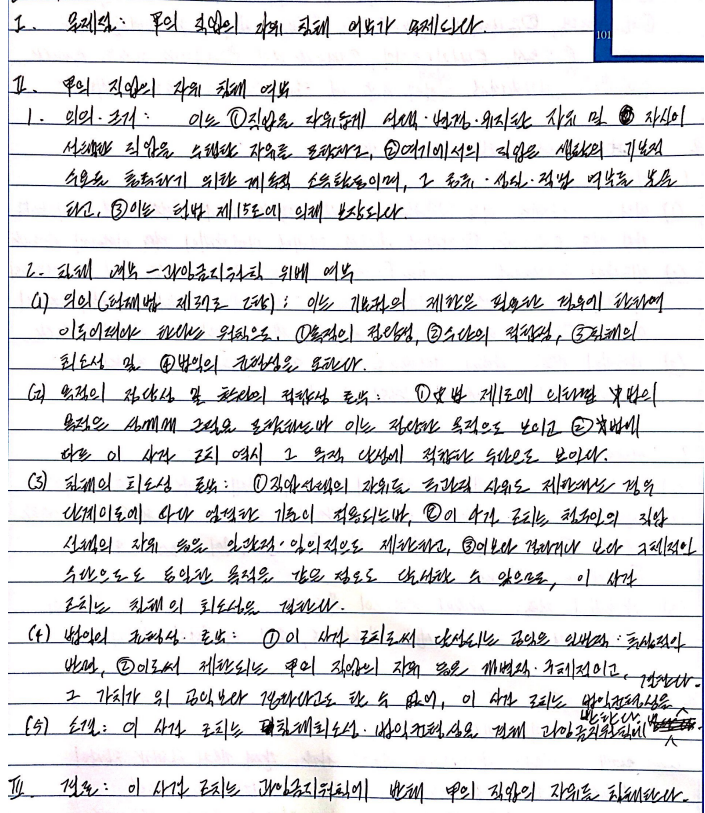 101
I. 문제점: 甲의 직업의 자유 침해 여부가 문제된다.
II. 甲의 직업의 자유 침해 여부
1. 의의·근거: 이는 ①직업을 자유롭게 선택·변경·유지할 자유 및 자신이
선택한 직업을 수행할 자유를 포함하고, ②여기에서의 직업은 생활의 기본적
수요를 충족하기 위한 계속적 소득활동이며, 그 종류·성질·적법 여부를 보을
하고, ③이는 헌법 제15조에 의해 보장된다.
2. 침해 여부 - 과잉금지원칙 위배 여부
(1) 의의(헌재법 제37조 2항): 이는 기본권의 제한은 필요한 경우에 한하여
이루어져야 한다는 원칙으로, ①목적의 정당성, ②수단의 적합성, ③침해의
최소성 및 ④법익의 균형성을 요한다.
(2) 목적의 정당성 및 수단의 적합성 토부: ①☆법 제1조에 의하면 ☆법의
목적은 포함하는바 이는 정당한 목적으로 보이고 ②☆법에
따른 이 사건 조치 역시 그 목적 달성에 적합한 수단으로 보인다.
(3) 침해의 최소성 토부: ①직업선택의 자유를 주관적 사유로 제한하는 경우
단계이론에 따라 엄격한 기준이 적용되는바, ②이 사건 조치는 직업
선택의 자유 등을 일률적·일의적으로 제한하고, ③이보다 보다 구체적인
수단으로도 동일한 목적을 같은 정도로 달성할 수 있으므로, 이 사건
조치는 침해의 최소성을 결한다.
(4) 법익의 균형성 토부: ①이 사건 조치로써 달성되는 공익은 일반적·추상적인
반면, ②이로써 제한되는 甲의 직업의 자유 등은 개별적·구체적이고,
그 가치가 위 공익보다 할 수 없어, 이 사건 조치는 법익균형성을 결한다.
(5) 소결: 이 사건 조치는 침해최소성·법익균형성을 결해 과잉금지원칙에 반한다.
III. 결론: 이 사건 조치는 과잉금지원칙에 반해 甲의 직업의 자유를 침해한다.